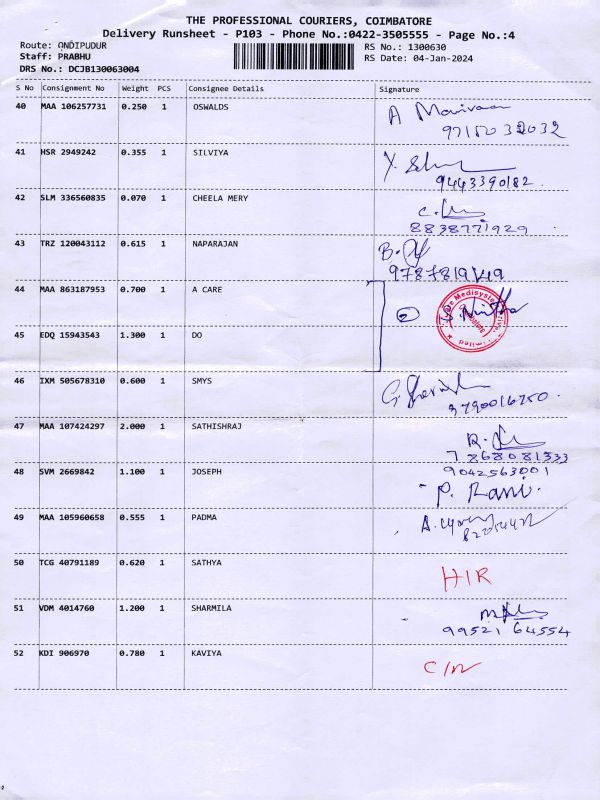 THE PROFESSIONAL COURIERS, COIMBATORE
Delivery Runsheet - P103 - Phone No.:0422-3505555 - Page No.:4
Route: ONDIPUDUR
RS No.: 1300630
Staff: PRABHU
RS Date: 04-Jan-2024
DRS No.: DCJB130063004
S No Consignment No Weight PCS Consignee Details Signature
40 MAA 106257731 0.250 1 OSWALDS
A
9715032032
41 HSR 2949242 0.355 1 SILVIYA
9443390182
42 SLM 336560835 0.070 1 CHEELA MERY
8838771929
43 TRZ 120043112 0.615 1 NAPARAJAN
44 MAA 863187953 0.700 1 A CARE
2
45 EDQ 15943543 1.300 1 DO
46 IXM 505678310 0.600 1 SMYS
47 MAA 107424297 2.000 1 SATHISHRAJ
7868081333
48 SVM 2669842 1.100 1 JOSEPH
9042563001
P. Rani.
49 MAA 105960658 0.555 1 PADMA
50 TCG 40791189 0.620 1 SATHYA
HIR
51 VDM 4014760 1.200 1 SHARMILA
99521 64554
52 KDI 906970 0.780 1 KAVIYA